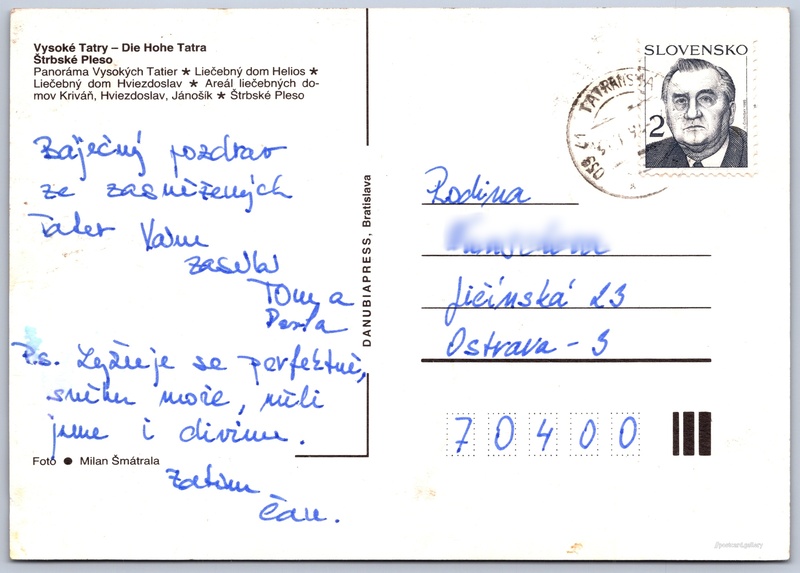 Vysoké Tatry – Die Hohe Tatra
Štrbské Pleso
Panoráma Vysokých Tatier ★ Liečebný dom Helios ★
Liečebný dom Hviezdoslav ★ Areál liečebných do-
mov Kriváň, Hviezdoslav, Jánošík ★ Štrbské Pleso
Báječný pozdrav
ze zasněžených
Tater Vám
zasílá
Tom a
P.s. Lyžuje se perfektně,
sněhu moře, viděli
jsme i divinu.
Zatím
Čau.
Foto ● Milan Šmátrala
DANUBIAPRESS, Bratislava
SLOVENSKO
2
059 41 TATRANSKÁ
Rodina
Jičínská 23
Ostrava - 3
70400
//postcard.gallery